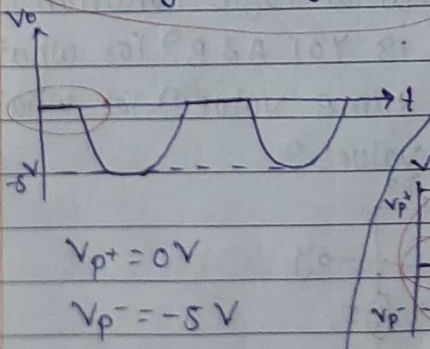 Vo
t
-5V
Vp+ = 0 V
Vp- = -5 V
V
Vp+
Vp-